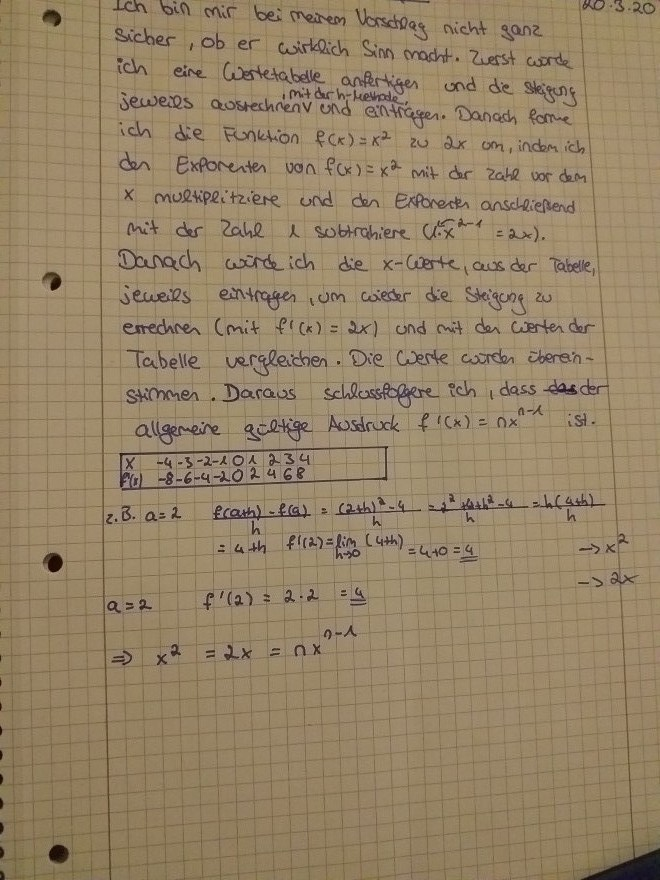 20.3.20
Ich bin mir bei meinem Vorschlag nicht ganz
sicher, ob er wirklich Sinn macht. Zuerst würde
ich eine Wertetabelle anfertigen und die Steigung
jeweils ausrechnen, mit der h-Methode, und eintragen. Danach forme
ich die Funktion f(x) = x² zu 2x um, indem ich
den Exponenten von f(x) = x² mit der Zahl vor dem
x multiplitziere und den Exponenten anschließend
mit der Zahl 1 subtrahiere (1·x²⁻¹ = 2x).
Danach würde ich die x-Werte, aus der Tabelle,
jeweils eintragen, um wieder die Steigung zu
errechnen (mit f'(x) = 2x) und mit den Werten der
Tabelle vergleichen. Die Werte würden überein-
stimmen. Daraus schlussfolgere ich, dass das der
allgemeine gültige Ausdruck f'(x) = nxⁿ⁻¹ ist.
x -4 -3 -2 -1 0 1 2 3 4
f'(x) -8 -6 -4 -2 0 2 4 6 8
z.B. a=2 f(a+h) - f(a) / h = (2+h)² - 4 / h = 2² + 4h + h² - 4 / h = h(4+h) / h
= 4+h f'(2) = lim h→0 (4+h) = 4+0 = 4
→ x²
→ 2x
a=2 f'(2) = 2·2 = 4
⇒ x² = 2x = nxⁿ⁻¹